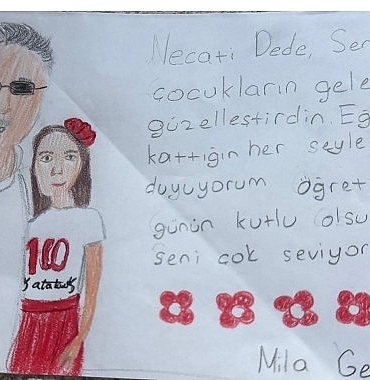 Necati Dede, Sen
çocukların gele
güzelleştirdin. Eğ
kattığın her şeyle
duyuyorum öğret
günün kutlu olsu
seni çok seviyor
Mila Ge
100
Atatürk